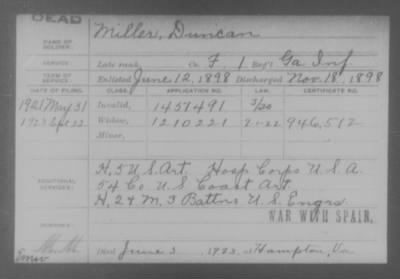 DEAD
NAME OF SOLDIER: Miller, Duncan
SERVICE: Late rank, Co. F. 1 Reg't Ga Inf.
TERM OF SERVICE: Enlisted June 12, 1898 Discharged Nov. 18, 1898
DATE OF FILING. CLASS. APPLICATION NO. LAW. CERTIFICATE NO.
1921 May 31 Invalid, 1457491 3/20
1923 Sept 22 Widow, 1210221 946,512
Minor,
ADDITIONAL SERVICES: H. 5 U S. Art. Hosp Corps U.S.A.
54 Co. U.S Coast Art.
H, 2 & M, 3 Battns U.S. Engrs.
WAR WITH SPAIN.
REMARKS:
Died June 3, 1923, at Hampton, Va